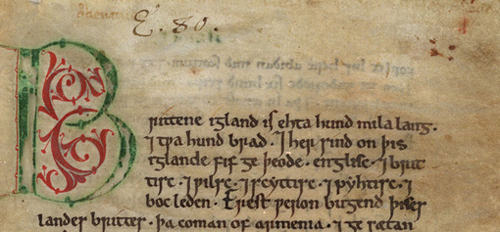 E. 80.
Brittene igland is ehta hund mila lang.
⁊ tƿa hund brad. ⁊ her sind on þis
iglande fif ge þeode. englisc. ⁊ brit
tisc. ⁊ ƿilsc. ⁊ scyttisc. ⁊ pyhtisc. ⁊
boc leden. Erest ƿeron bugend þises
landes brittes. þa coman of armenia. ⁊ ge sætan